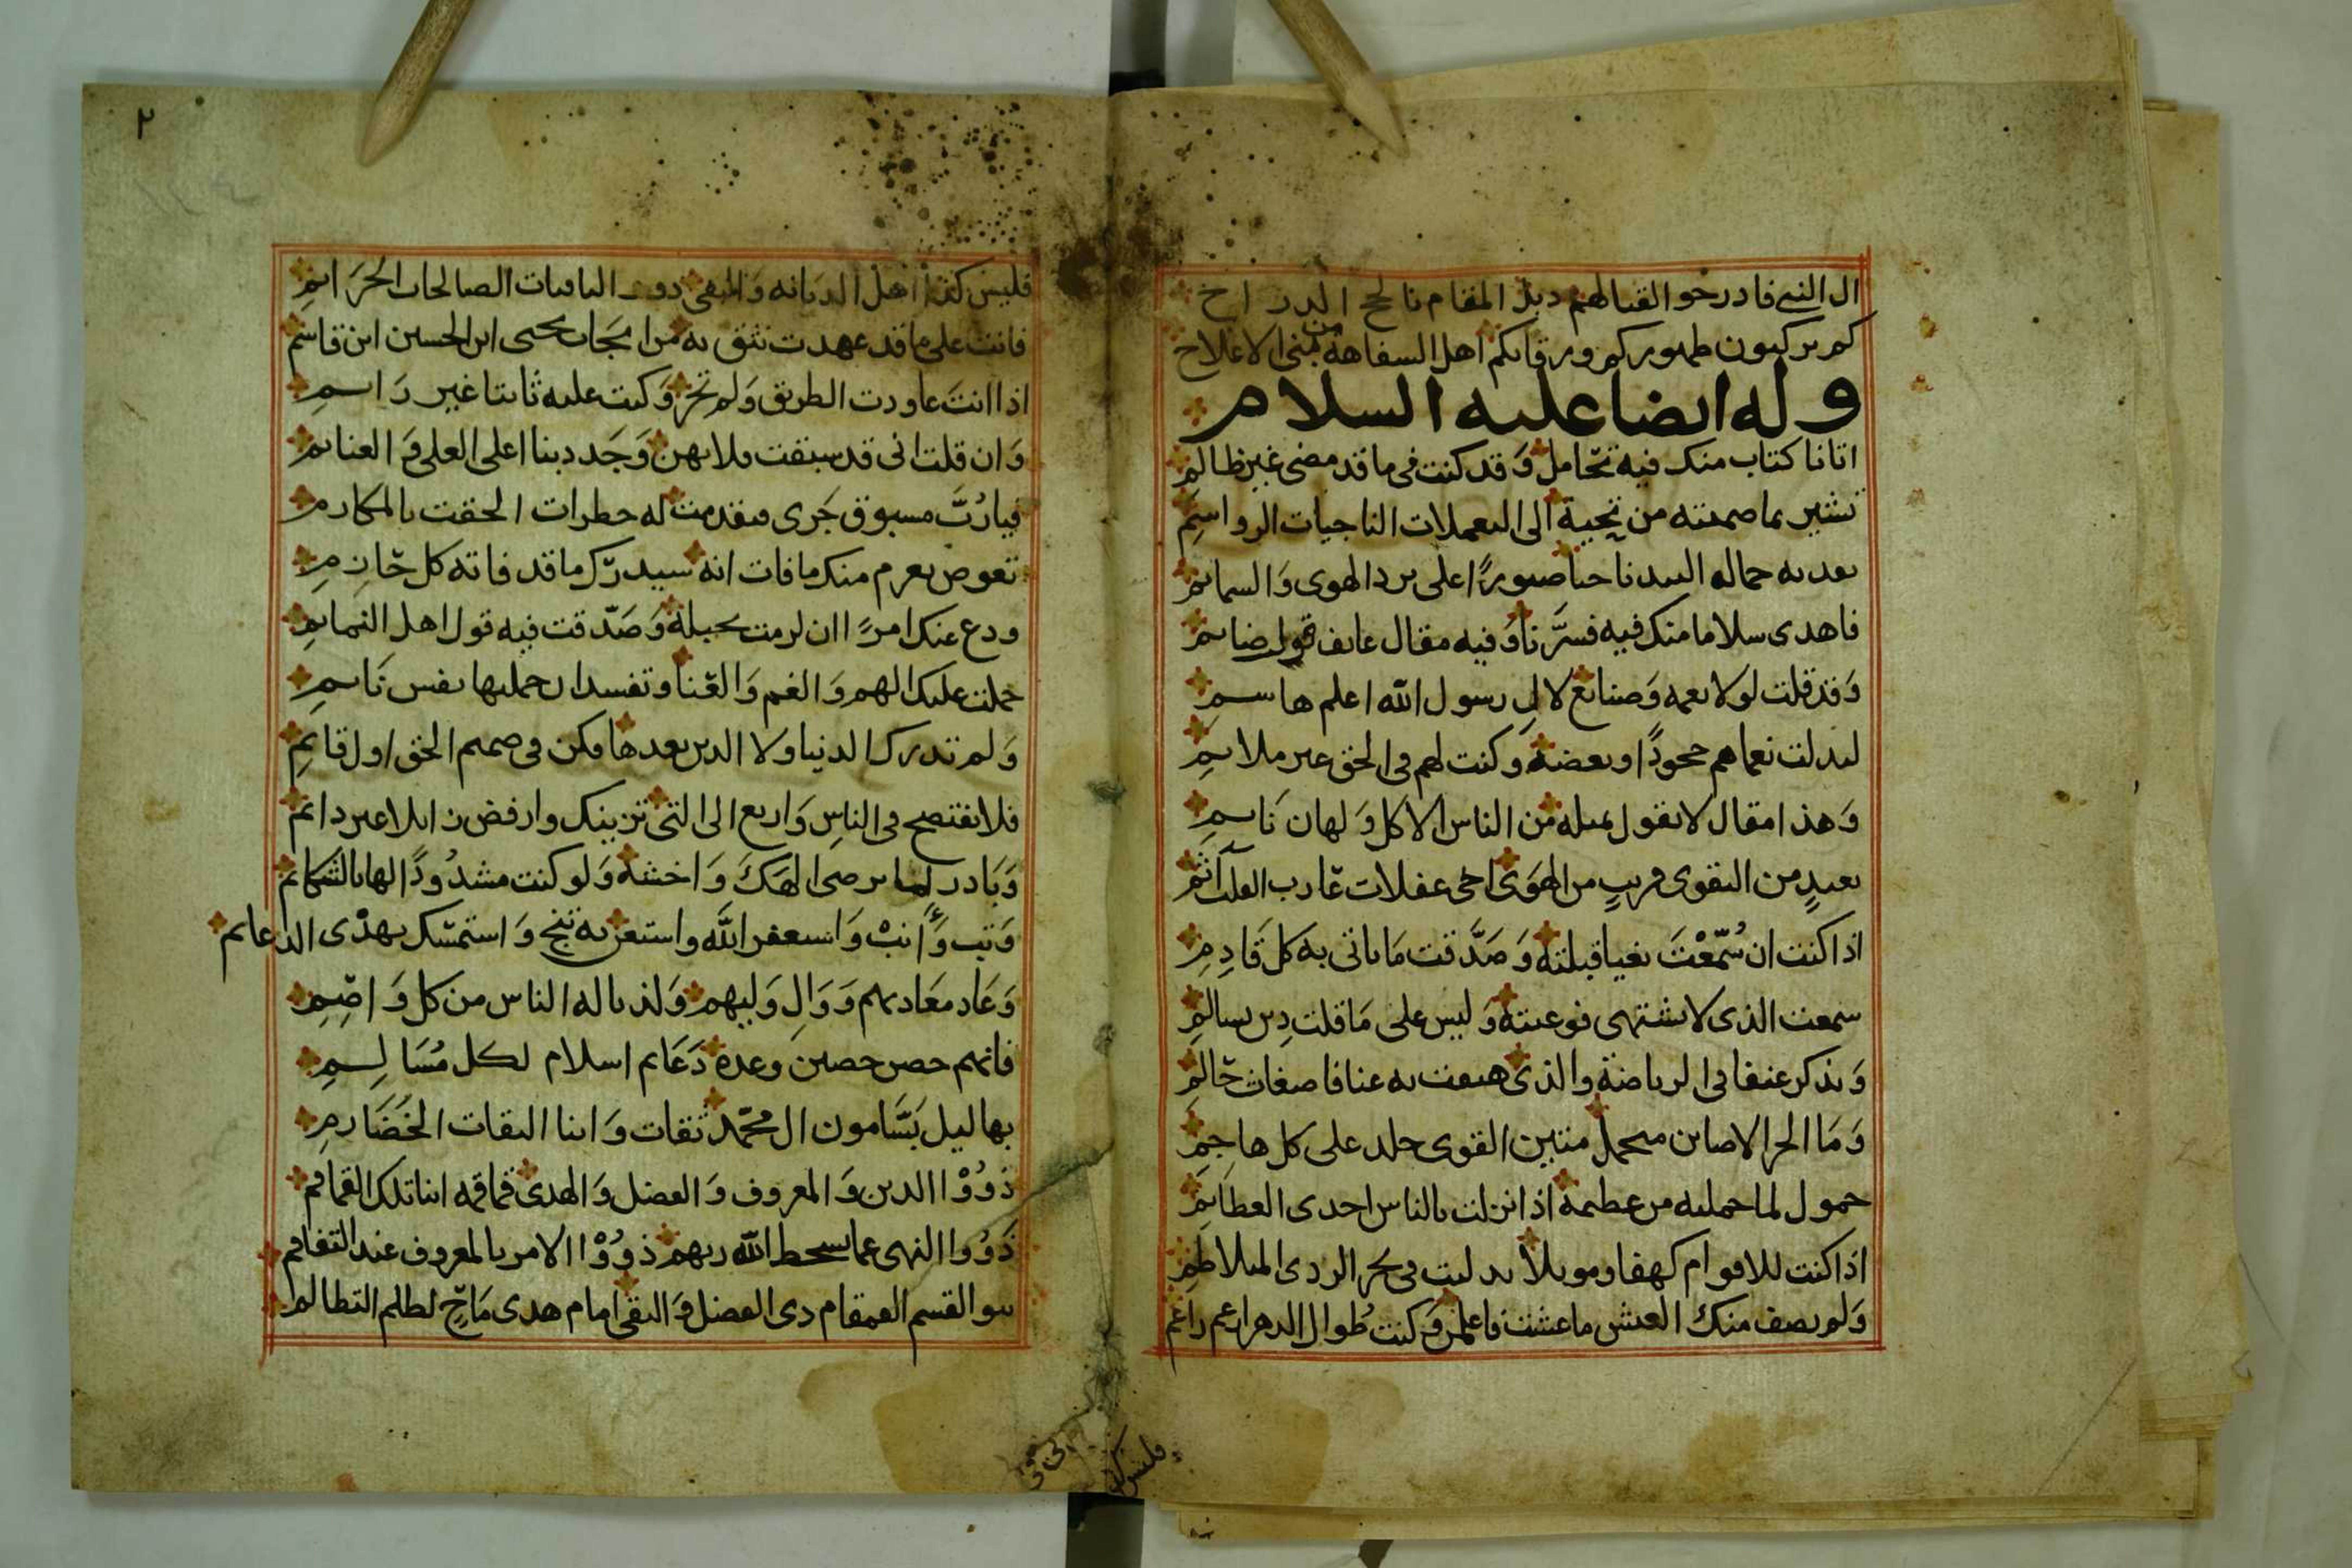 ال النبي فادرجو القنالهم دبل المقام نالح الدر اخ
كم بركبون طهوركم ورقابكم اهل السفاهة من بني الاعلاح
وله ايضا عليه السلام
اتانا كتاب منك فيه تحامل وقد كنت في ما قد مضى غير ظالم
تشير بما ضمنته من تحية الى اليعملات الناجيات الرواسم
فاهدى سلاما منك فيه فسرنا وفيه مقال عايف قول ضايم
وقد قلت لولا نعمه وصنايع لال رسول الله اعلم هاسم
لبدلت نعماهم جحودا وبغضة وكنت لهم في الحق غير ملايم
وهذا مقال لا يقول بمثله من الناس الا كل ولهان نايم
بعيد من التقوى قريب من الهوى اخى غفلات عازب القلب آثم
اذا كنت ان سمعت بغيا قبلته وصدقت ما ياتى به كل قادم
سمعت الذى لا تشتهى فوعيته وليس على ما قلت دين بسالم
وتذكر عنفا في الرياضة والذى هتفت به عنا فاضغاث حالم
وما الحر الا صابن متحمل متين القوى جلد على كل هاجم
حمول لما حملته من عظيمة اذا نزلت بالناس احدى العظايم
اذا كنت للاقوام كهفا وموئلا تدليت في بحر الردى المتلاطم
ولم يصف منك العيش ما عشت فاعلمن وكنت طوال الدهر ارغم راغم
فليس كت
فليس كتقوى اهل الديانه والتقى دوى الباقيات الصالحات الحرايم
فانت على ما قد عهدت نثق به من امجاب يحيى ابن الحسين ابن قاسم
اذا انت عاودت الطريق ولم تحر وكنت عليه ثابتا غير رايم
وان قلت انى قد سبقت فلا تهن وجدد بنا اعلى العلى والغنايم
فيا رب مسبوق جرى فتقدمت له خطرات الحقت بالمكارم
تعوض بعزم منك ما فات انه سيدرك ما قد فاته كل حازم
ودع عنك امرا ان لزمت بحبله وصدقت فيه قول اهل النمايم
حملت عليك الهم والغم والعنا وتفسد ان حملتها نفس نايم
ولم تدرك الدنيا ولا الدين بعدها فكن في صميم الحق اول قايم
فلا تفتضح في الناس واربع الى التى تزينك وارفض زايلا غير دايم
وبادر لما يرضى الهك واخشه ولو كنت مشدودا لها بالشكايم
وتب وانب واستغفر الله واستعن به تنج واستمسك بهدى الدعايم
وعاد معاديهم ووال وليهم ولذ باله الناس من كل واضم
فانهم حصن حصين وعدة دعايم اسلام لكل مسالم
بهاليل بسامون ال محمد ثقات وابنا الثقات الخضارم
ذووا الدين والمعروف والفضل والهدى قماقمه ابنا تلك القماقم
ذووا النهى عما يسخط الله ربهم ذووا الامر بالمعروف عند التفاقم
بنو القسم القمقام ذى الفضل والتقى امام هدى ماح لظلم التظالم